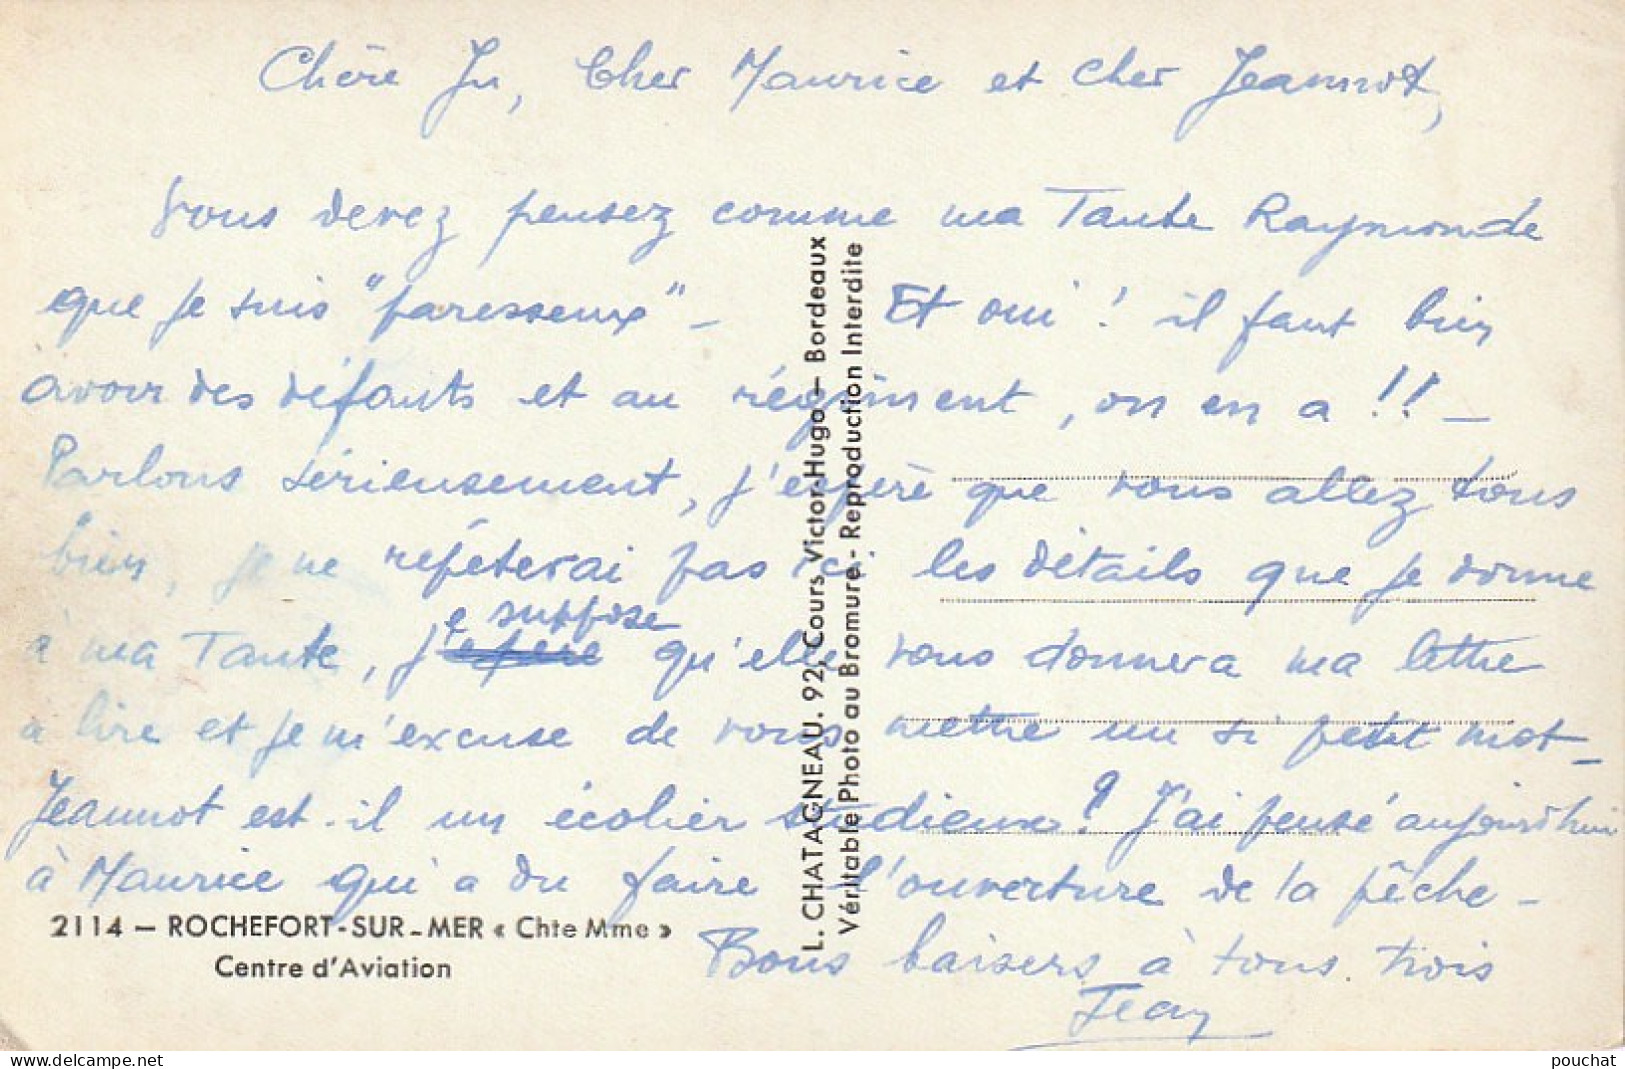 Chère Ju, Cher Maurice et cher Jeannot,
Vous devez pensez comme ma Tante Raymonde
que je suis "paresseux" - Et oui ! il faut bien
avoir des défauts et au régiment, on en a !! -
Parlons sérieusement, j'espère que vous allez tous
bien, je ne répéterai pas ici les détails que je donne
e suppose
à ma Tante, j'espère qu'elle vous donnera ma lettre
a lire et je m'excuse de vous mettre un si petit mot -
Jeannot est-il un écolier studieux ? J'ai pensé aujourd'hui
à Maurice qui a du faire l'ouverture de la pêche -
Bons baisers à tous trois
Jean
2114 — ROCHEFORT-SUR-MER « Chte Mme »
Centre d'Aviation
L. CHATAGNEAU. 92, Cours Victor-Hugo — Bordeaux
Véritable Photo au Bromure - Reproduction Interdite
www.delcampe.net
pouchat